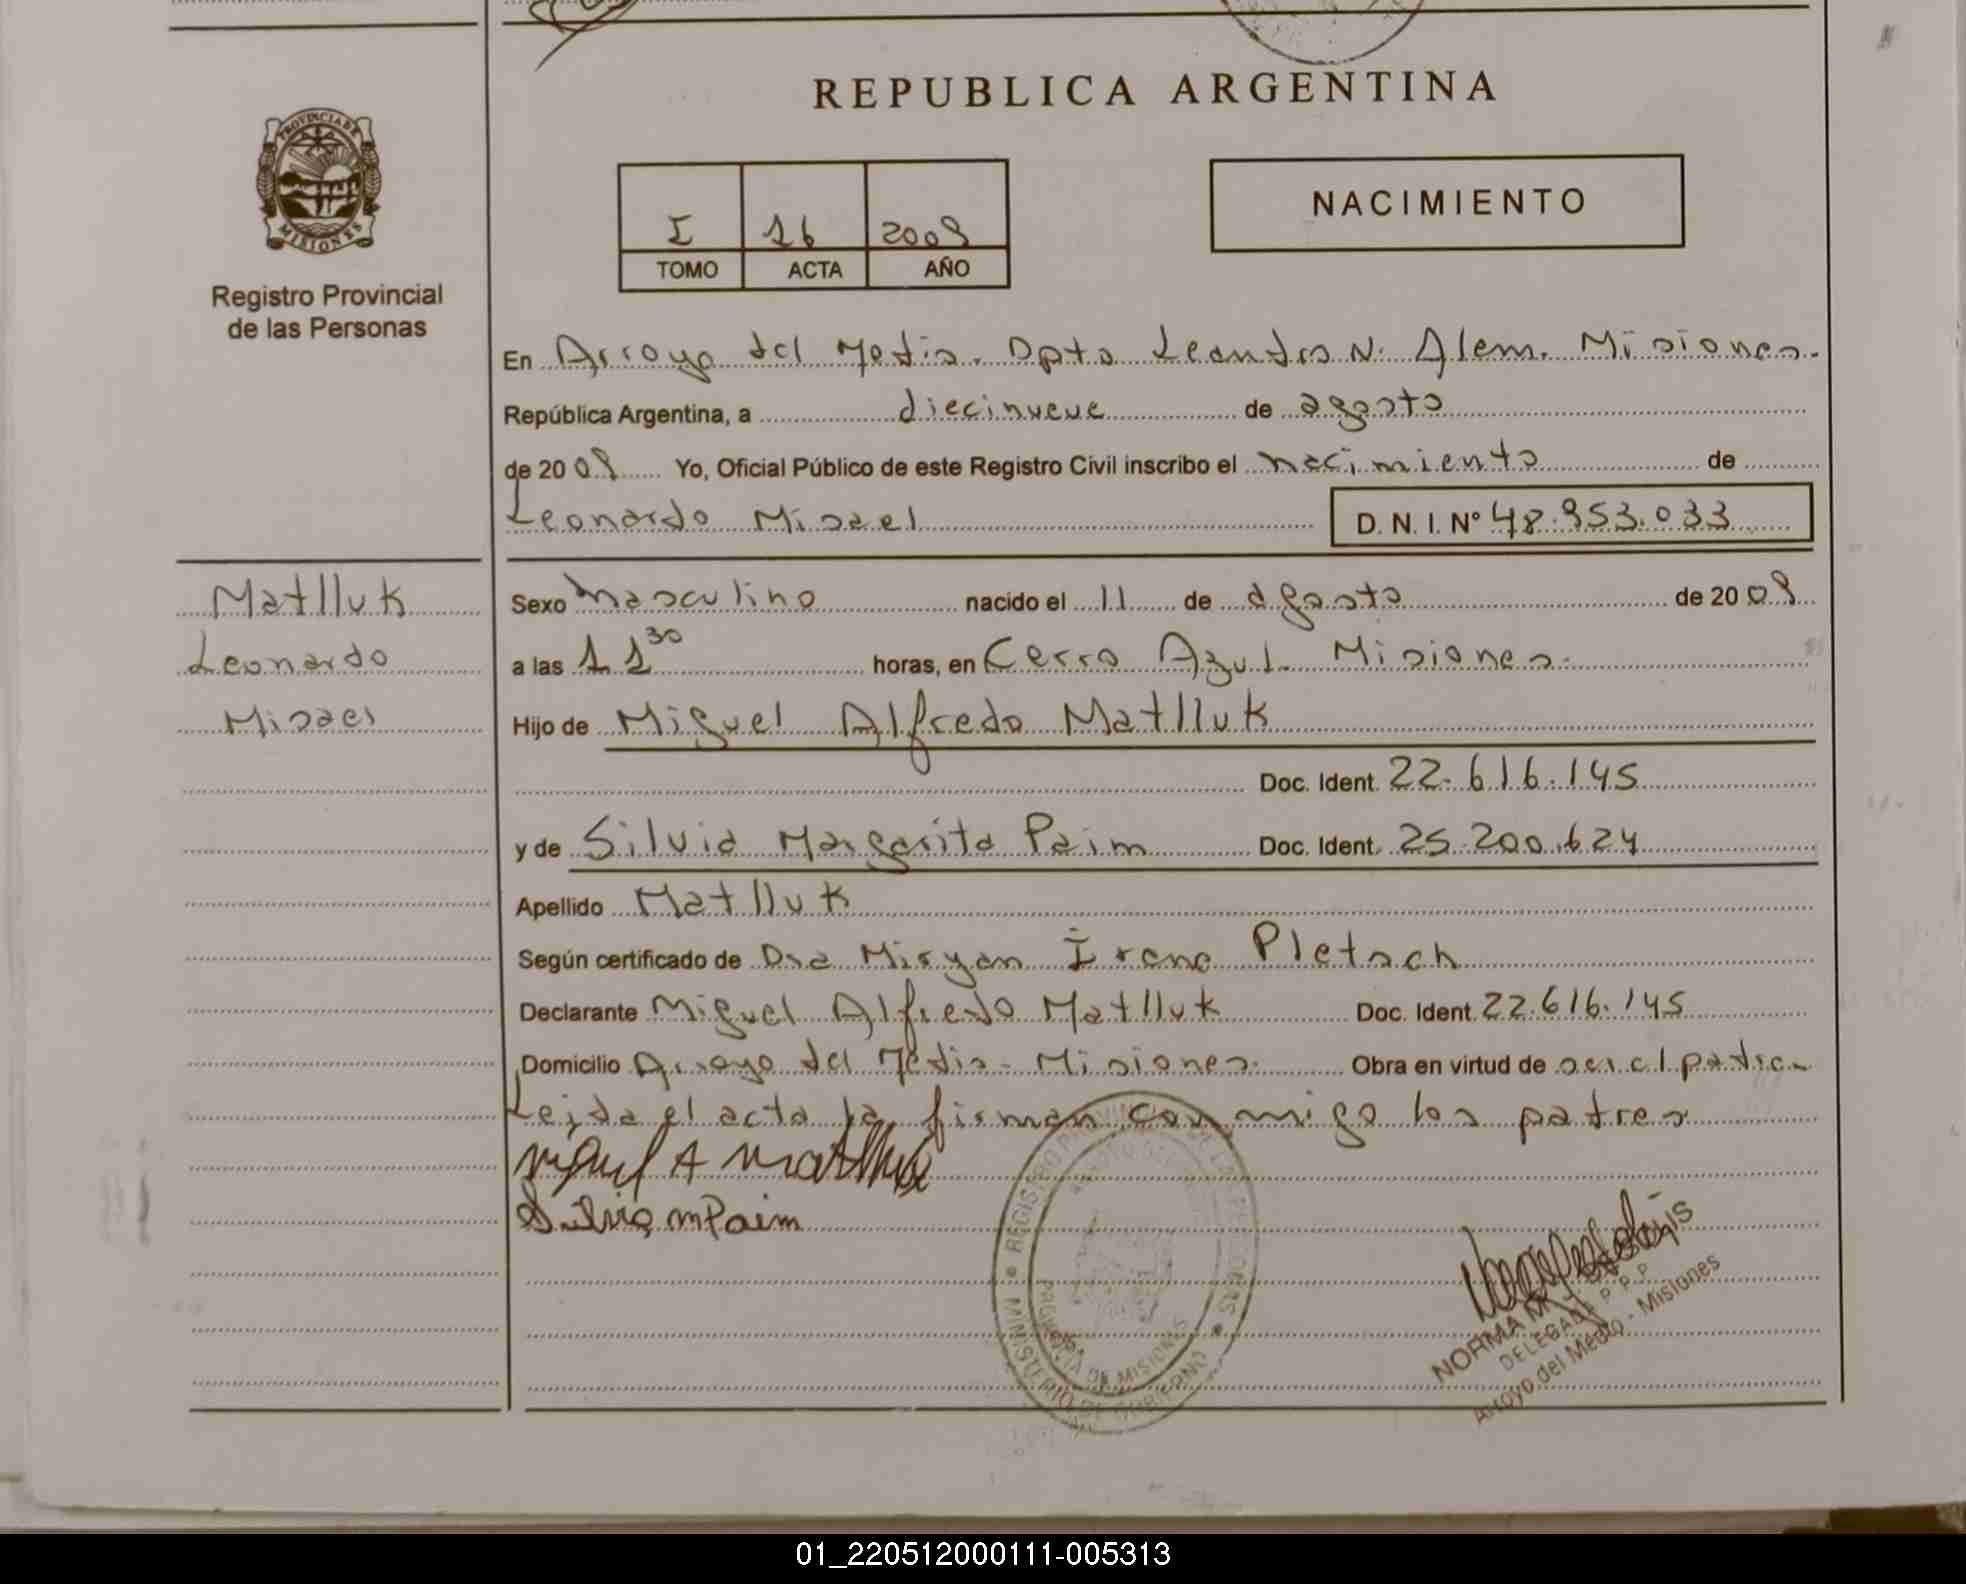 REPUBLICA ARGENTINA
PROVINCIA DE MISIONES
Registro Provincial
de las Personas
I 16 2009
TOMO ACTA AÑO
NACIMIENTO
En Arroyo del Medio. Dpto Leandro N. Alem. Misiones.
República Argentina, a diecinueve de agosto
de 2009 Yo, Oficial Público de este Registro Civil inscribo el nacimiento de
Leonardo Misael D. N. I. N° 48.953.033
Matlluk
Leonardo
Misael
Sexo masculino nacido el 11 de agosto de 2009
a las 11 30 horas, en Cerro Azul. Misiones.
Hijo de Miguel Alfredo Matlluk
Doc. Ident. 22.616.145
y de Silvia Margarita Paim Doc. Ident. 25.200.624
Apellido Matlluk
Según certificado de Dra Miryan Irene Pletsch
Declarante Miguel Alfredo Matlluk Doc. Ident. 22.616.145
Domicilio Arroyo del Medio - Misiones. Obra en virtud de ser el padre.
Leida el acta la firman conmigo los padres
Miguel A Matlluk
Silvia M Paim
REGISTRO PROVINCIAL DE LAS PERSONAS
MINISTERIO DE GOBIERNO
PROVINCIA DE MISIONES
NORMA
DELEGADA R P P
Arroyo del Medio - Misiones
01_220512000111-005313